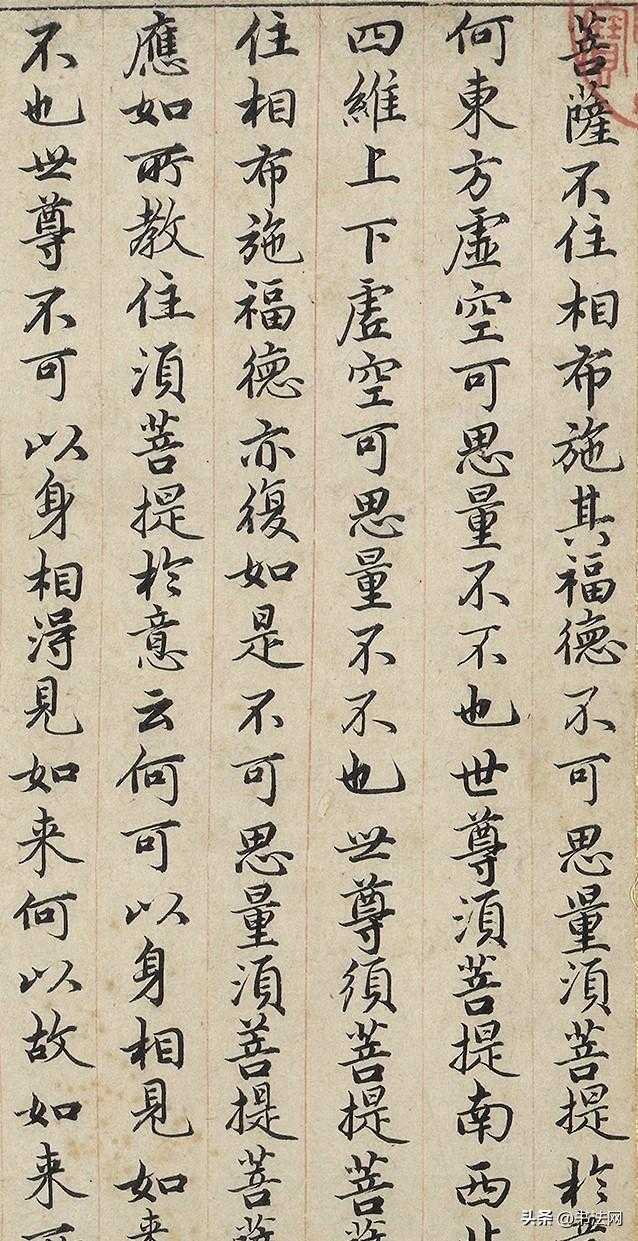 菩薩不住相布施其福德不可思量須菩提於
何東方虛空可思量不不也世尊須菩提南西北
四維上下虛空可思量不不也世尊須菩提菩薩
住相布施福德亦復如是不可思量須菩提菩薩
應如所教住須菩提於意云何可以身相見如来
不也世尊不可以身相得見如来何以故如来
头条 @书法网